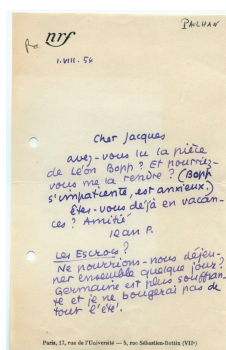 PAULHAN
nrf
1.VIII.54
Cher Jacques
avez-vous lu la pièce
de Léon Bopp ? Et pourriez-
vous me la rendre ? (Bopp
s'impatiente, est anxieux.)
Êtes-vous déjà en vacan-
ces ? Amitié
Jean P.
Les Escrocs ?
Ne pourrions-nous déjeu-
ner ensemble quelque jour ?
Germaine est plus souffran-
te et je ne bougerai pas de
tout l'été.
Paris, 17, rue de l'Université — 5, rue Sébastien-Bottin (VIIe)